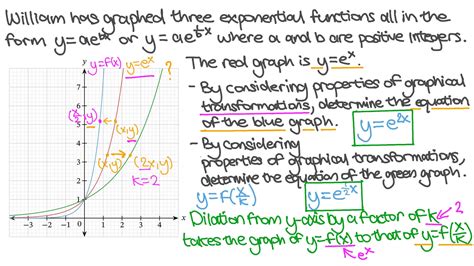 William has graphed three exponential functions all in the
form y=ae^bx or y=ae^(1/b)x where a and b are positive integers.
y=f(x) y=e^x ?
The real graph is y=e^x.
- By considering properties of graphical
transformations, determine the equation
of the blue graph. y=e^2x
- By considering
properties of graphical transformations,
determine the equation of the green graph.
y=f(x/k) y=e^(1/2)x
* Dilation from y-axis by a factor of k 2
takes the graph of y=f(x) to that of y=f(x/k)
e^x
y
7
6
5
4
3
2
1
(x/2,y)
(x,y)
(x,y) (2x,y)
k=2
-3 -2 -1 0 1 2 3 4 x